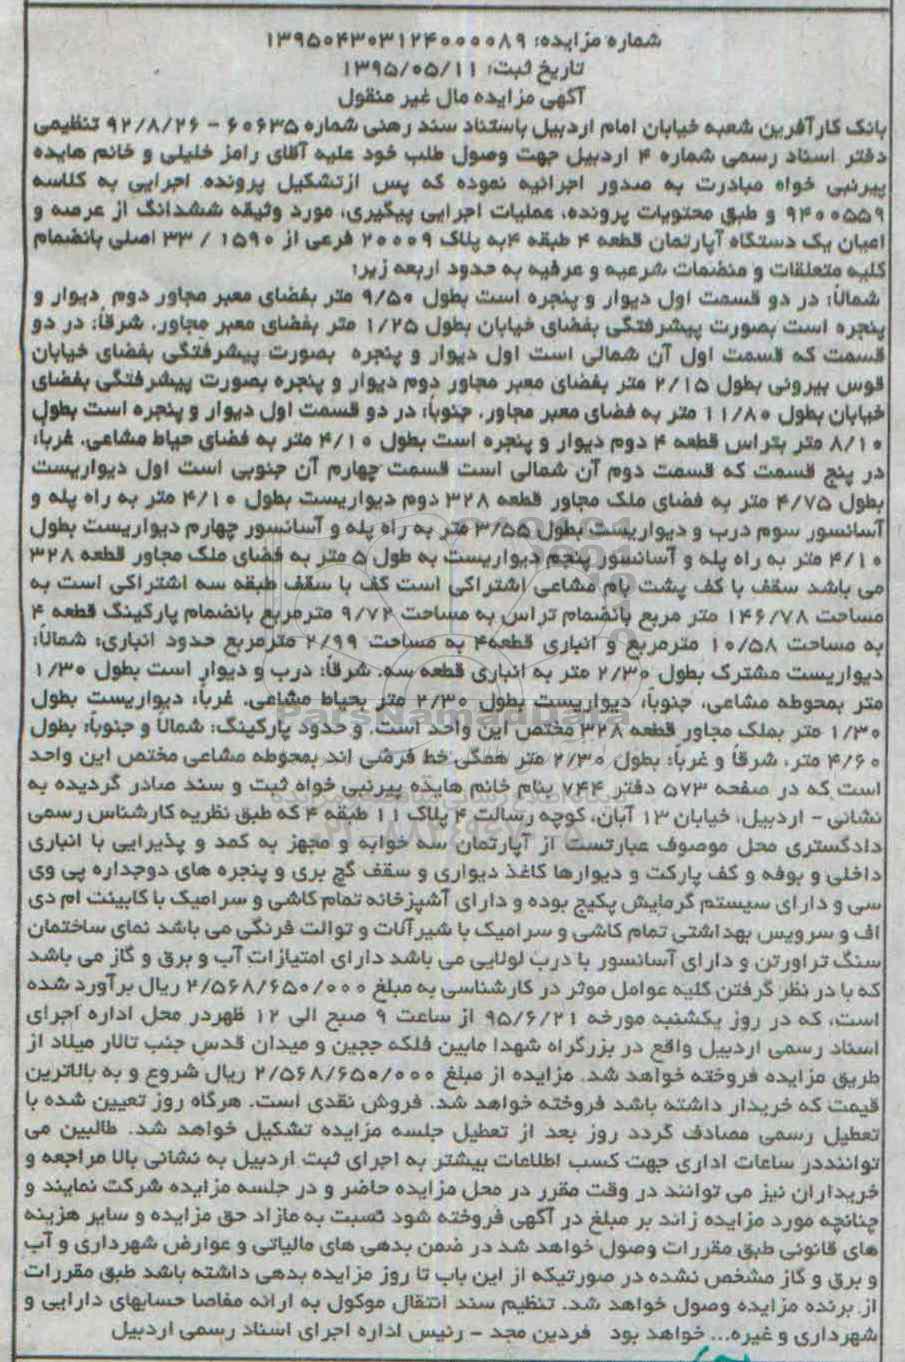 شماره مزایده: ۱۳۹۵۰۴۳۰۳۱۲۴۰۰۰۰۸۹
تاریخ ثبت: ۱۳۹۵/۰۵/۱۱
آگهی مزایده مال غیر منقول
بانک کارآفرین شعبه خیابان امام اردبیل باستناد سند رهنی شماره ۶۰۶۳۵ - ۹۲/۸/۲۶ تنظیمی
دفتر اسناد رسمی شماره ۴ اردبیل جهت وصول طلب خود علیه آقای رامز خلیلی و خانم هایده
پیرنبی خواه مبادرت به صدور اجرائیه نموده که پس ازتشکیل پرونده اجرایی به کلاسه
۹۴۰۰۵۵۹ و طبق محتویات پرونده، عملیات اجرایی پیگیری، مورد وثیقه ششدانگ از عرصه و
اعیان یک دستگاه آپارتمان قطعه ۴ طبقه ۴به پلاک ۲۰۰۰۹ فرعی از ۱۵۹۰ / ۳۳ اصلی بانضمام
کلیه متعلقات و منضمات شرعیه و عرفیه به حدود اربعه زیر:
شمالاً: در دو قسمت اول دیوار و پنجره است بطول ۹/۵۰ متر بفضای معبر مجاور دوم دیوار و
پنجره است بصورت پیشرفتگی بفضای خیابان بطول ۱/۲۵ متر بفضای معبر مجاور. شرقاً: در دو
قسمت که قسمت اول آن شمالی است اول دیوار و پنجره بصورت پیشرفتگی بفضای خیابان
قوس بیرونی بطول ۲/۱۵ متر بفضای معبر مجاور دوم دیوار و پنجره بصورت پیشرفتگی بفضای
خیابان بطول ۱۱/۸۰ متر به فضای معبر مجاور. جنوباً: در دو قسمت اول دیوار و پنجره است بطول
۸/۱۰ متر بتراس قطعه ۴ دوم دیوار و پنجره است بطول ۴/۱۰ متر به فضای حیاط مشاعی. غرباً:
در پنج قسمت که قسمت دوم آن شمالی است قسمت چهارم آن جنوبی است اول دیواریست
بطول ۴/۷۵ متر به فضای ملک مجاور قطعه ۳۲۸ دوم دیواریست بطول ۴/۱۰ متر به راه پله و
آسانسور سوم درب و دیواریست بطول ۳/۵۵ متر به راه پله و آسانسور چهارم دیواریست بطول
۴/۱۰ متر به راه پله و آسانسور پنجم دیواریست به طول ۵ متر به فضای ملک مجاور قطعه ۳۲۸
می باشد سقف با کف پشت بام مشاعی اشتراکی است کف با سقف طبقه سه اشتراکی است به
مساحت ۱۴۶/۷۸ متر مربع بانضمام تراس به مساحت ۹/۷۲ مترمربع بانضمام پارکینگ قطعه ۴
به مساحت ۱۰/۵۸ مترمربع و انباری قطعه۴ به مساحت ۲/۹۹ مترمربع حدود انباری: شمالاً:
دیواریست مشترک بطول ۲/۳۰ متر به انباری قطعه سه. شرقاً: درب و دیوار است بطول ۱/۳۰
متر بمحوطه مشاعی. جنوباً: دیواریست بطول ۲/۳۰ متر بحیاط مشاعی. غرباً: دیواریست بطول
۱/۳۰ متر بملک مجاور قطعه ۳۲۸ مختص این واحد است. و حدود پارکینگ: شمالاً و جنوباً: بطول
۴/۶۰ متر، شرقاً و غرباً: بطول ۲/۳۰ متر همگی خط فرضی اند بمحوطه مشاعی مختص این واحد
است که در صفحه ۵۷۳ دفتر ۷۴۴ بنام خانم هایده پیرنبی خواه ثبت و سند صادر گردیده به
نشانی - اردبیل، خیابان ۱۳ آبان، کوچه رسالت ۴ پلاک ۱۱ طبقه ۴ که طبق نظریه کارشناس رسمی
دادگستری محل موصوف عبارتست از آپارتمان سه خوابه و مجهز به کمد و پذیرایی با انباری
داخلی و بوفه و کف پارکت و دیوارها کاغذ دیواری و سقف گچ بری و پنجره های دوجداره پی وی
سی و دارای سیستم گرمایش پکیج بوده و دارای آشپزخانه تمام کاشی و سرامیک با کابینت ام دی
اف و سرویس بهداشتی تمام کاشی و سرامیک با شیرآلات و توالت فرنگی می باشد نمای ساختمان
سنگ تراورتن و دارای آسانسور با درب لولایی می باشد دارای امتیازات آب و برق و گاز می باشد
که با در نظر گرفتن کلیه عوامل موثر در کارشناسی به مبلغ ۲/۵۶۸/۶۵۰/۰۰۰ ریال برآورد شده
است، که در روز یکشنبه مورخه ۹۵/۶/۲۱ از ساعت ۹ صبح الی ۱۲ ظهردر محل اداره اجرای
اسناد رسمی اردبیل واقع در بزرگراه شهدا مابین فلکه ججین و میدان قدس جنب تالار میلاد از
طریق مزایده فروخته خواهد شد. مزایده از مبلغ ۲/۵۶۸/۶۵۰/۰۰۰ ریال شروع و به بالاترین
قیمت که خریدار داشته باشد فروخته خواهد شد. فروش نقدی است. هرگاه روز تعیین شده با
تعطیل رسمی مصادف گردد روز بعد از تعطیل جلسه مزایده تشکیل خواهد شد. طالبین می
توانندر ساعات اداری جهت کسب اطلاعات بیشتر به اجرای ثبت اردبیل به نشانی بالا مراجعه و
خریداران نیز می توانند در وقت مقرر در محل مزایده حاضر و در جلسه مزایده شرکت نمایند و
چنانچه مورد مزایده زائد بر مبلغ در آگهی فروخته شود نسبت به مازاد حق مزایده و سایر هزینه
های قانونی طبق مقررات وصول خواهد شد در ضمن بدهی های مالیاتی و عوارض شهرداری و آب
و برق و گاز مشخص نشده در صورتیکه از این باب تا روز مزایده بدهی داشته باشد طبق مقررات
از برنده مزایده وصول خواهد شد. تنظیم سند انتقال موکول به ارائه مفاصا حسابهای دارایی و
شهرداری و غیره... خواهد بود فردین مجد - رئیس اداره اجرای اسناد رسمی اردبیل
ParsNamadData